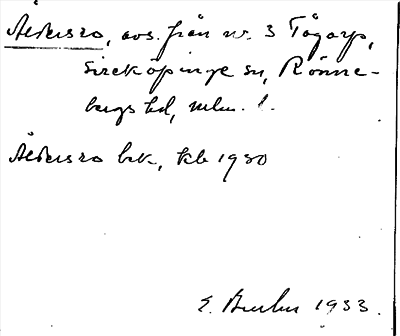 Åldersro, avs. från nr. 3 Tågarp,
Sireköpinge sn, Rönne-
bergs hd, Mlm. l.
Åldersro brk, kb 1930
E. 1933.